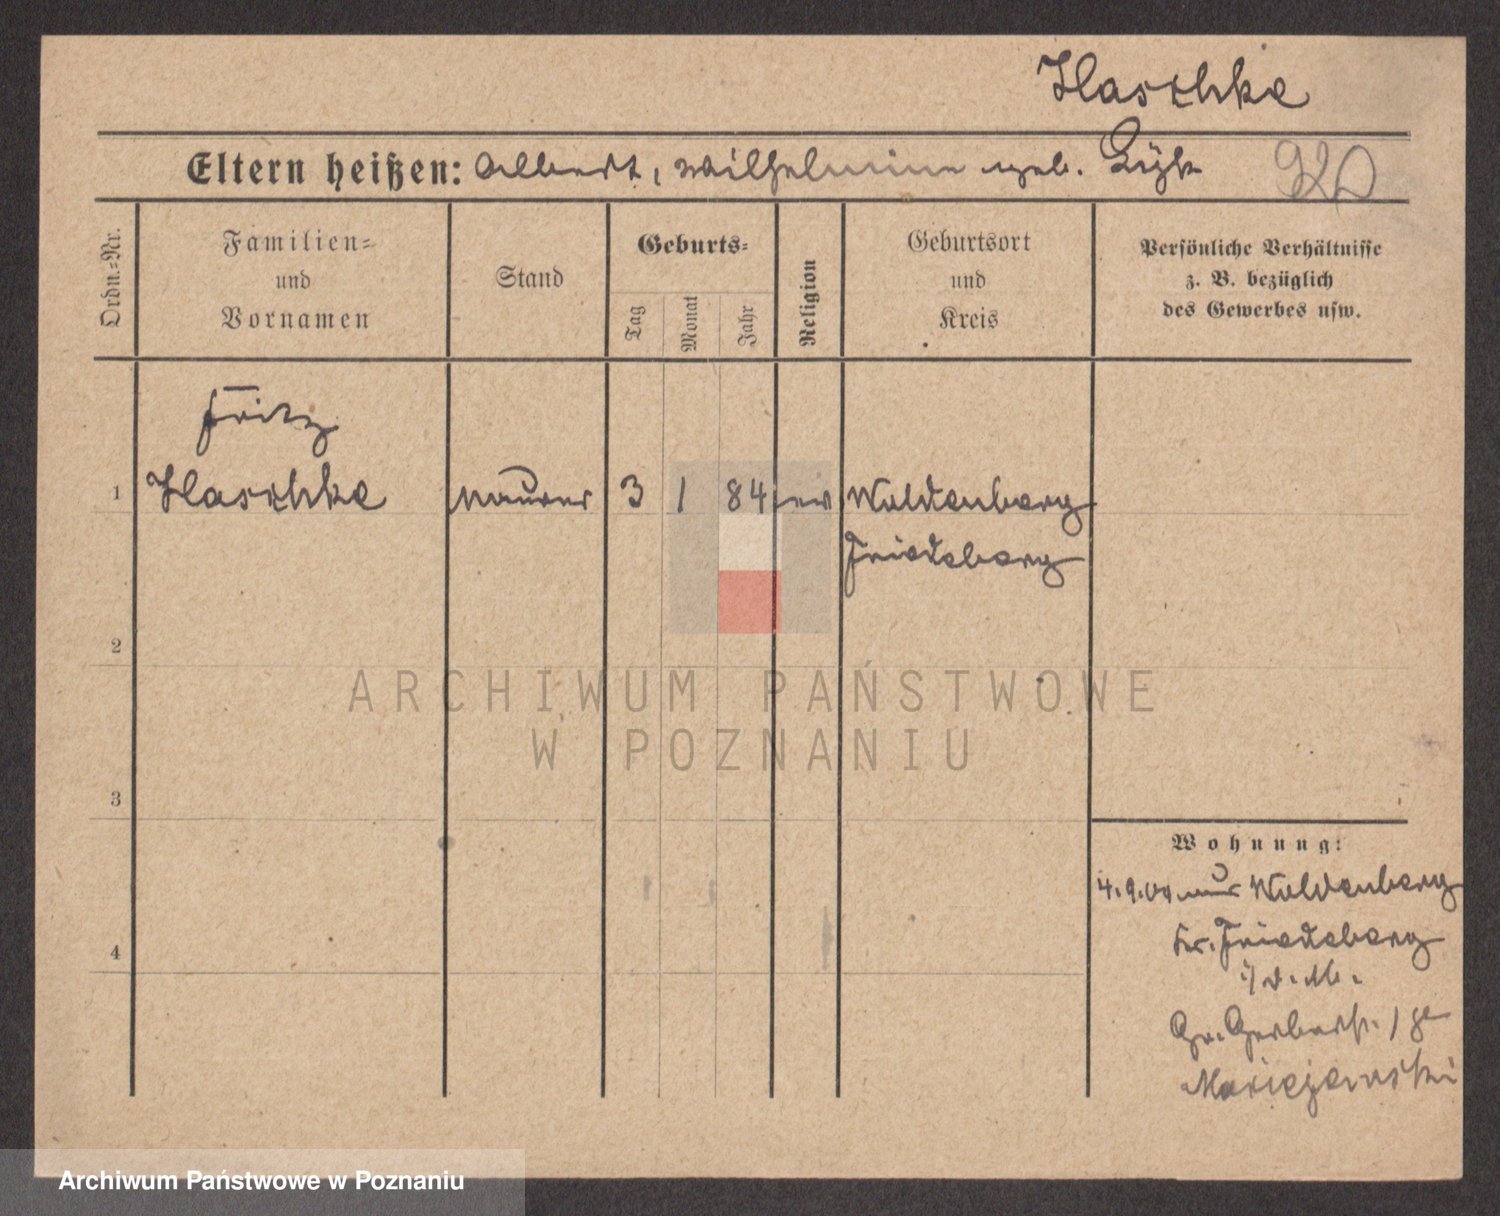 Haschke
Eltern heißen: Albert, Wilhelmine geb.
920
Ordn.-Nr.
Familien-
und
Vornamen
Stand
Geburts-
Tag
Monat
Jahr
Religion
Geburtsort
und
Kreis
Persönliche Verhältnisse
z. B. bezüglich
des Gewerbes usw.
Fritz
1 Haschke Maurer 3 1 84 ev Woldenberg
Friedeberg
2
ARCHIWUM PAŃSTWOWE
W POZNANIU
3
Wohnung:
4.9.04 aus Woldenberg
Kr. Friedeberg
i/d. M.
4
Gr. Gerberstr.
Archiwum Państwowe w Poznaniu